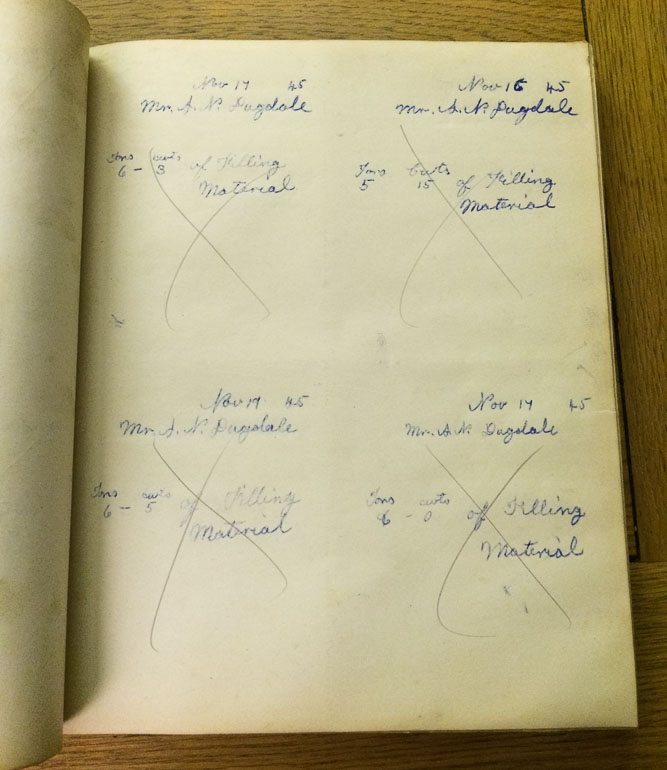 Nov 17 45
Mr. A. N. Dugdale
Tons cwts
6 - 3 of Filling
Material
Nov 16 45
Mr. A. N. Dugdale
Tons Cwts
5 15 of Filling
Material
Nov 19 45
Mr. A. N. Dugdale
Tons cwts
6 - 5 of Filling
Material
Nov 17 45
Mr. A. N. Dugdale
Tons cwts
6 - 0 of Filling
Material